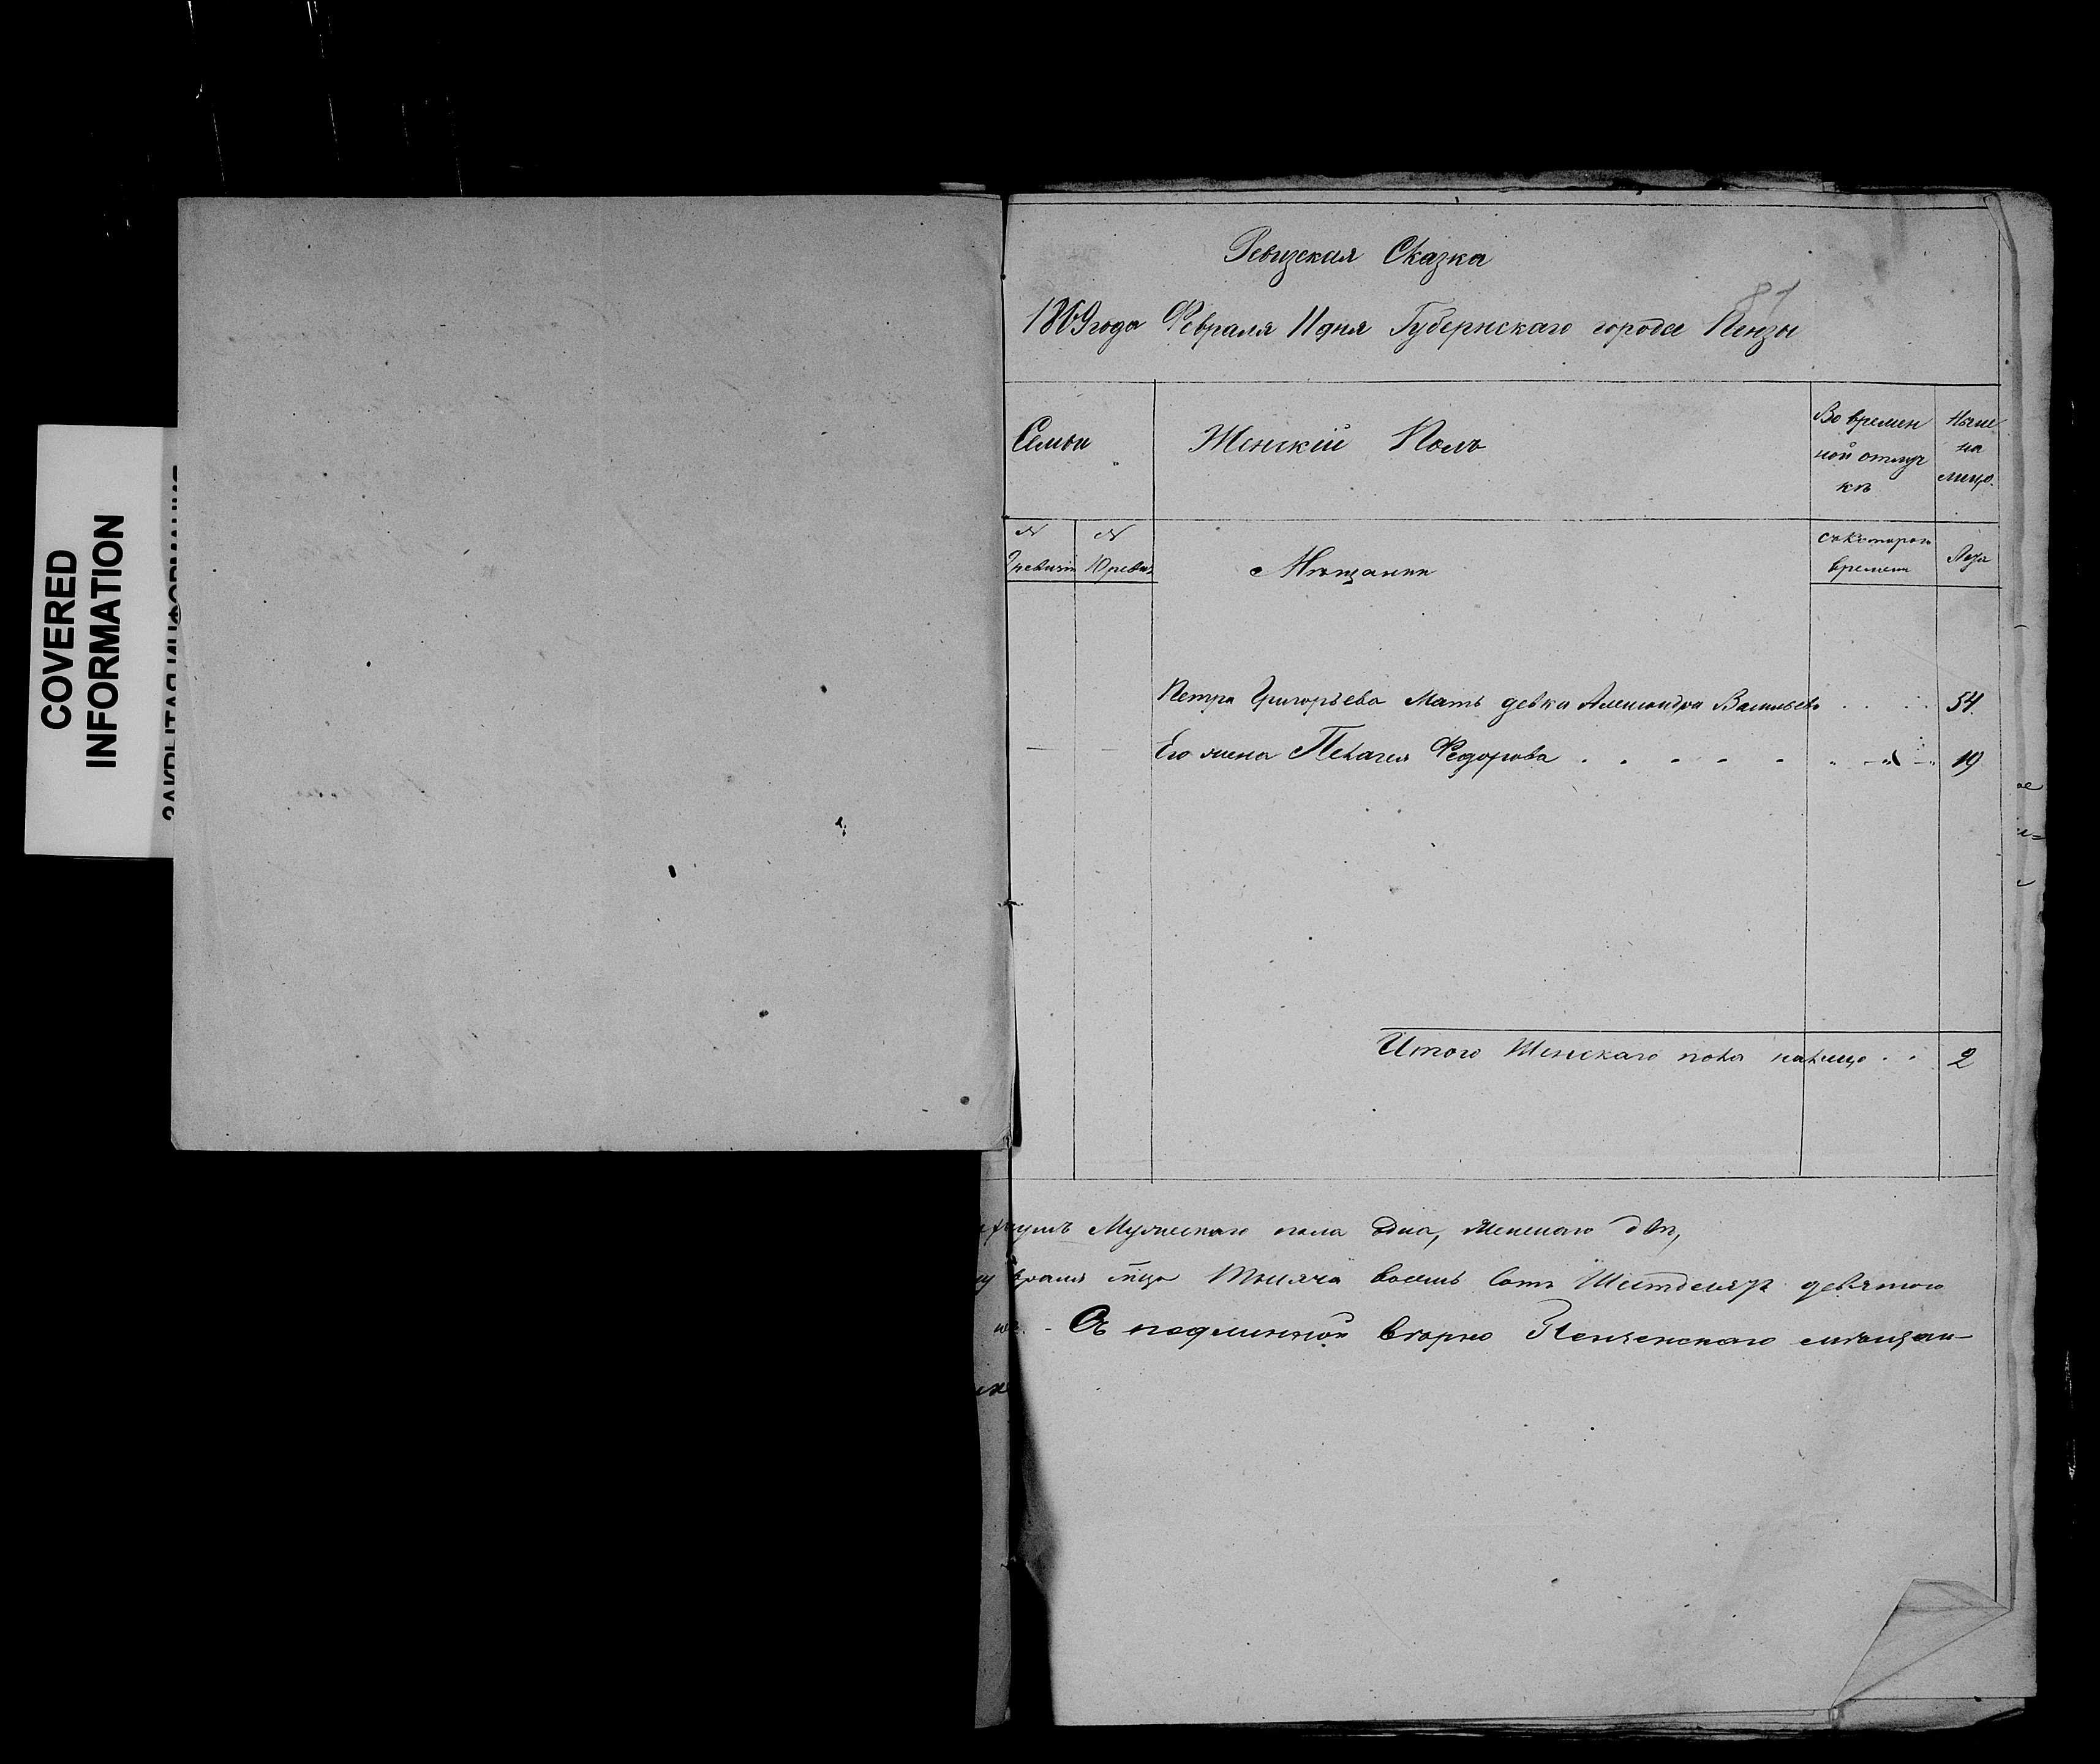 COVERED
INFORMATION
ЗАКРЫТАЯ ИНФОРМАЦИЯ
Ревизская Сказка
81
1869 года Февраля 11 дня Губернскаго города Пензы
Семьи
Женскій Полъ
Во времен
ной отлуч
кѣ
Ныне
на
лицо.
№
ревизіи
№
10 ревиз
Мѣщанки
съ котораго
времени
Лѣта
Петра Григорьева Мать девка Александра Васильева . . . . 54.
Его жена Пелагея Федорова . . . . . . 19
Итого Женскаго пола налицо . . 2
душъ Мужескаго пола одна, женскаго двѣ,
враля мца Тысяча восемь сотъ Шестдесятъ девятого
Съ подлинной вѣрно Пензенскаго мѣщан